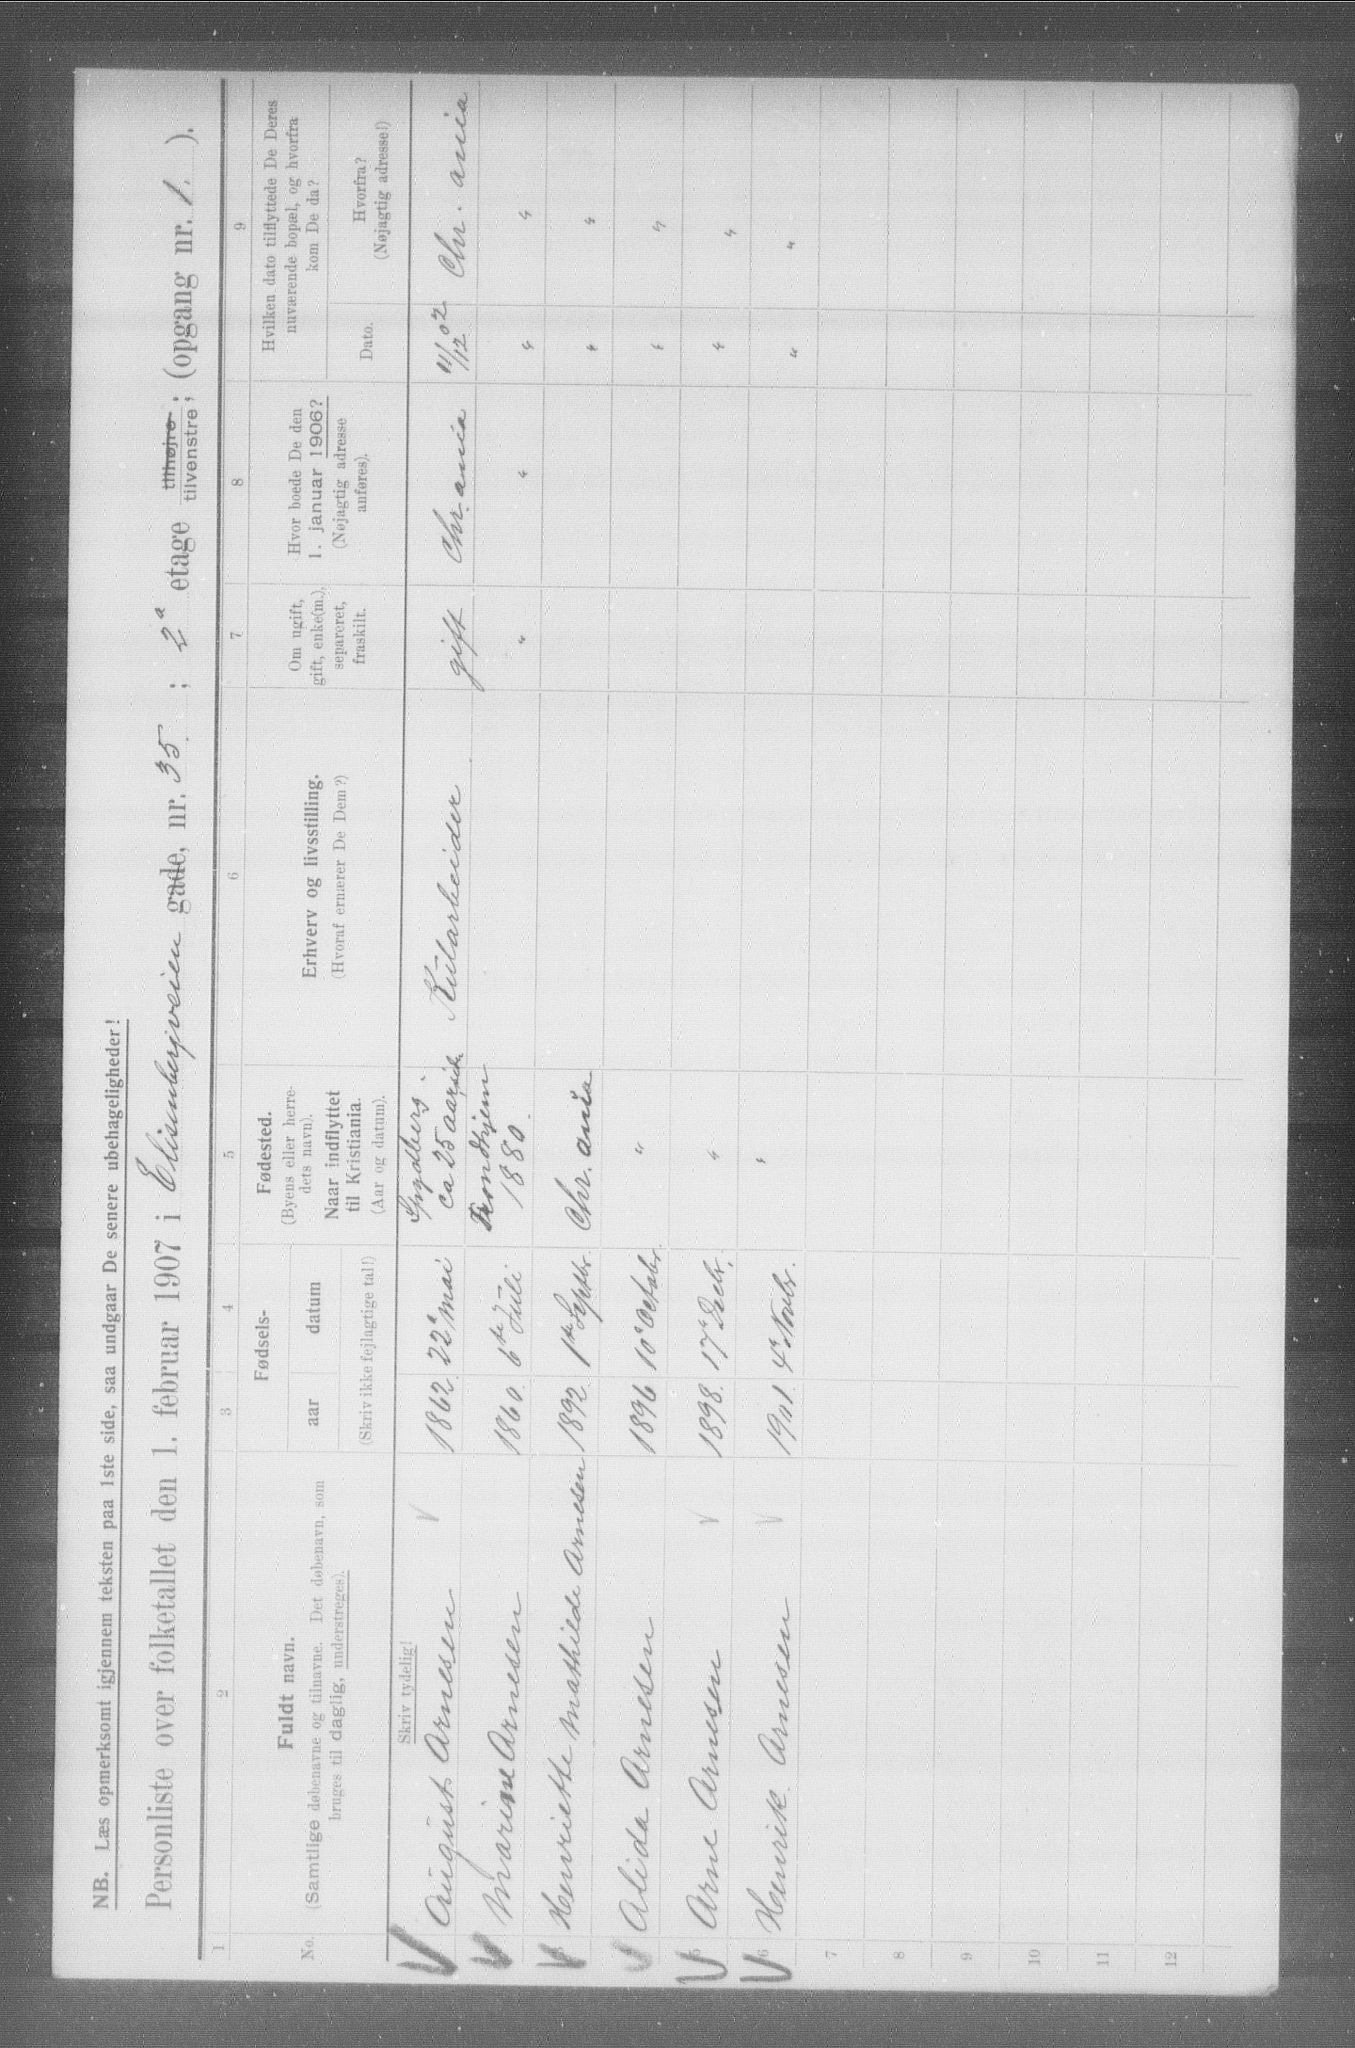 NB. Læs opmerksomt igjennem teksten paa 1ste side, saa undgaar De senere ubehageligheder!
Personliste over folketallet den 1. februar 1907 i Elisenbergveien gade, nr. 35 ; 2a etage tilhøjre ; tilvenstre ; (opgang nr. 1. ).
1 2 3 4 5 6 7 8 9
No.
Fuldt navn.
(Samtlige døbenavne og tilnavne. Det døbenavn, som
bruges til daglig, understreges).
Skriv tydelig!
Fødsels-
aar datum
(Skriv ikke fejlagtige tal!)
Fødested.
(Byens eller herre-
dets navn).
Naar indflyttet
til Kristiania.
(Aar og datum).
Erhverv og livsstilling.
(Hvoraf ernærer De Dem?)
Om ugift,
gift, enke(m.),
separeret,
fraskilt.
Hvor boede De den
1. januar 1906?
(Nøjagtig adresse
anføres).
Hvilken dato tilflyttede De Deres
nuværende bopæl, og hvorfra
kom De da?
Dato.
Hvorfra?
(Nøjagtig adresse!)
August Arnesen 1862. 22a mai Smedberg. ca 25 aar Kularbeider gift Chr. ania 11/12 02 Chr. ania
Marine Arnesen 1860. 6te Juli Trondhjem 1880. " " " "
Henriette Mathilde Arnesen 1892. 1te Septbr. Chr. ania " "
Alida Arnesen 1896 10de Octobr. " " "
5 Arne Arnesen 1898. 17de Decbr. " " "
6 Henrik Arnesen 1901. 4de Novbr. " " "
7
8
9
10
11
12